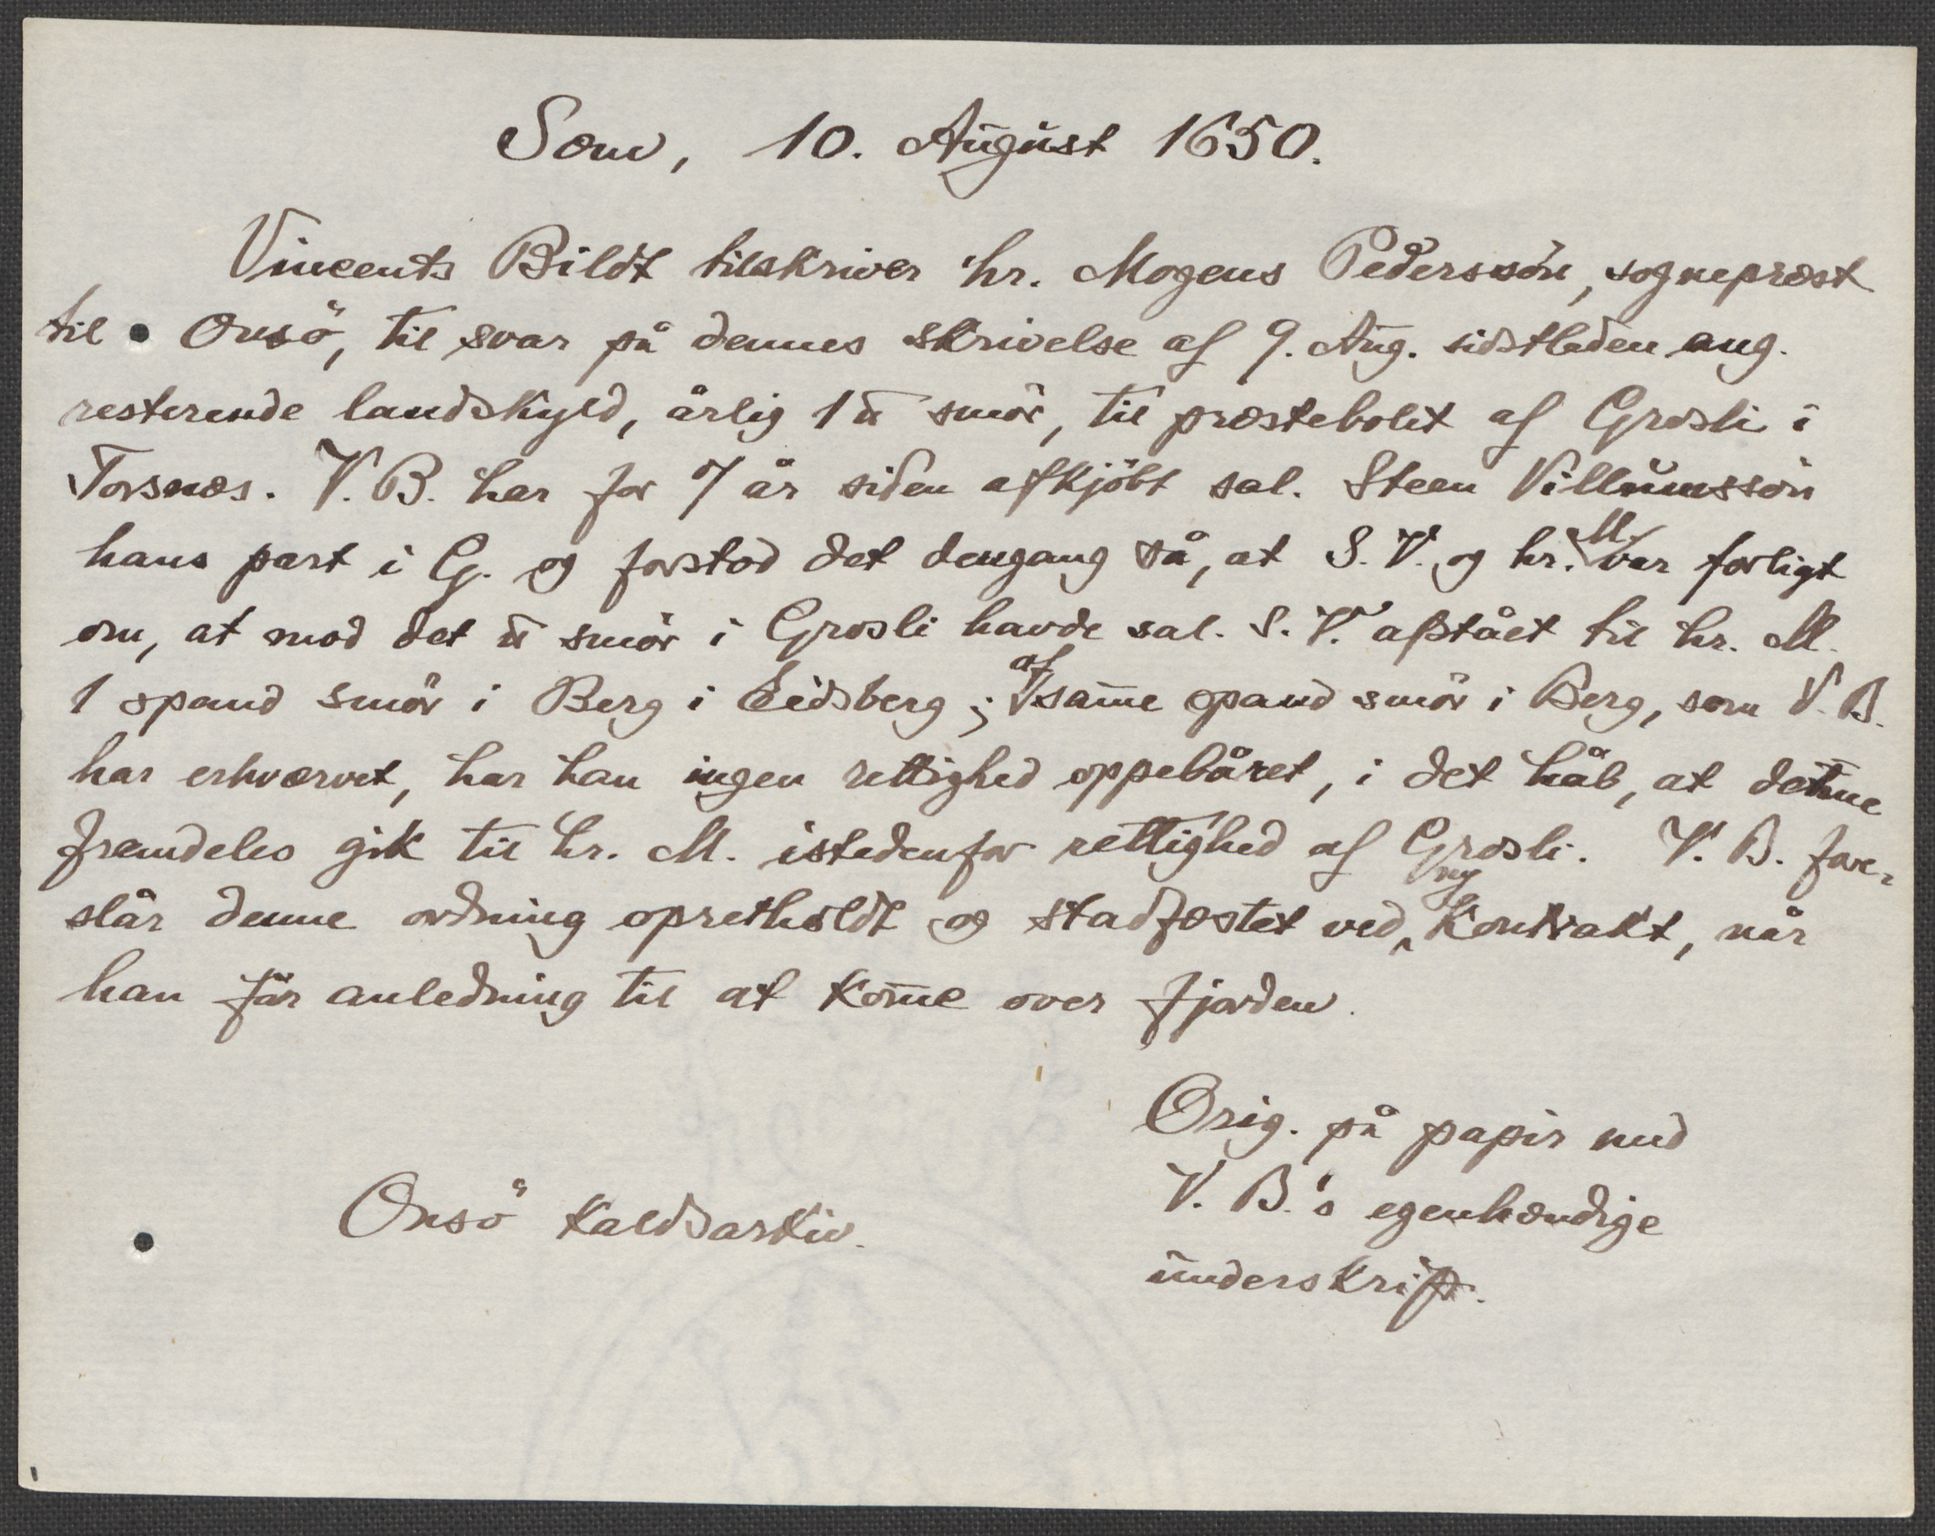 Sem, 10. August 1650.
Vincents Bildt tilskriver hr. Mogens Pederssön, sogneprest
til Onsö, til svar på dennes skrivelse af 9. Aug. sidstleden ang.
resterende landskyld, årlig 1 ℔ smör, til prestebolet af Grosli i
Torsnæs. V. B. har for 7 år siden afkjöbt sal. Steen Villumssön
hans part i G. og forstod det dengang så, at S. V. og hr. M. var forligt
om, at mod det ℔ smör i Grosli havde sal. S. V. afstået til hr. M.
1 spand smör i Berg i Eidsberg; af sam̄e spand smör i Berg, som V. B.
har erhvervet, har han ingen rettighed oppebåret, i det håb, at denne
fremdeles gik til hr. M. istedenfor rettighed af Grosli. V. B. fore-
slår denne ordning opretholdt og stadfæstet ved ny kontrakt, når
han får anledning til at kom̄e over fjorden.
Orig. på papir med
V. B.'s egenhændige
underskrift.
Onsö kaldsarkiv.